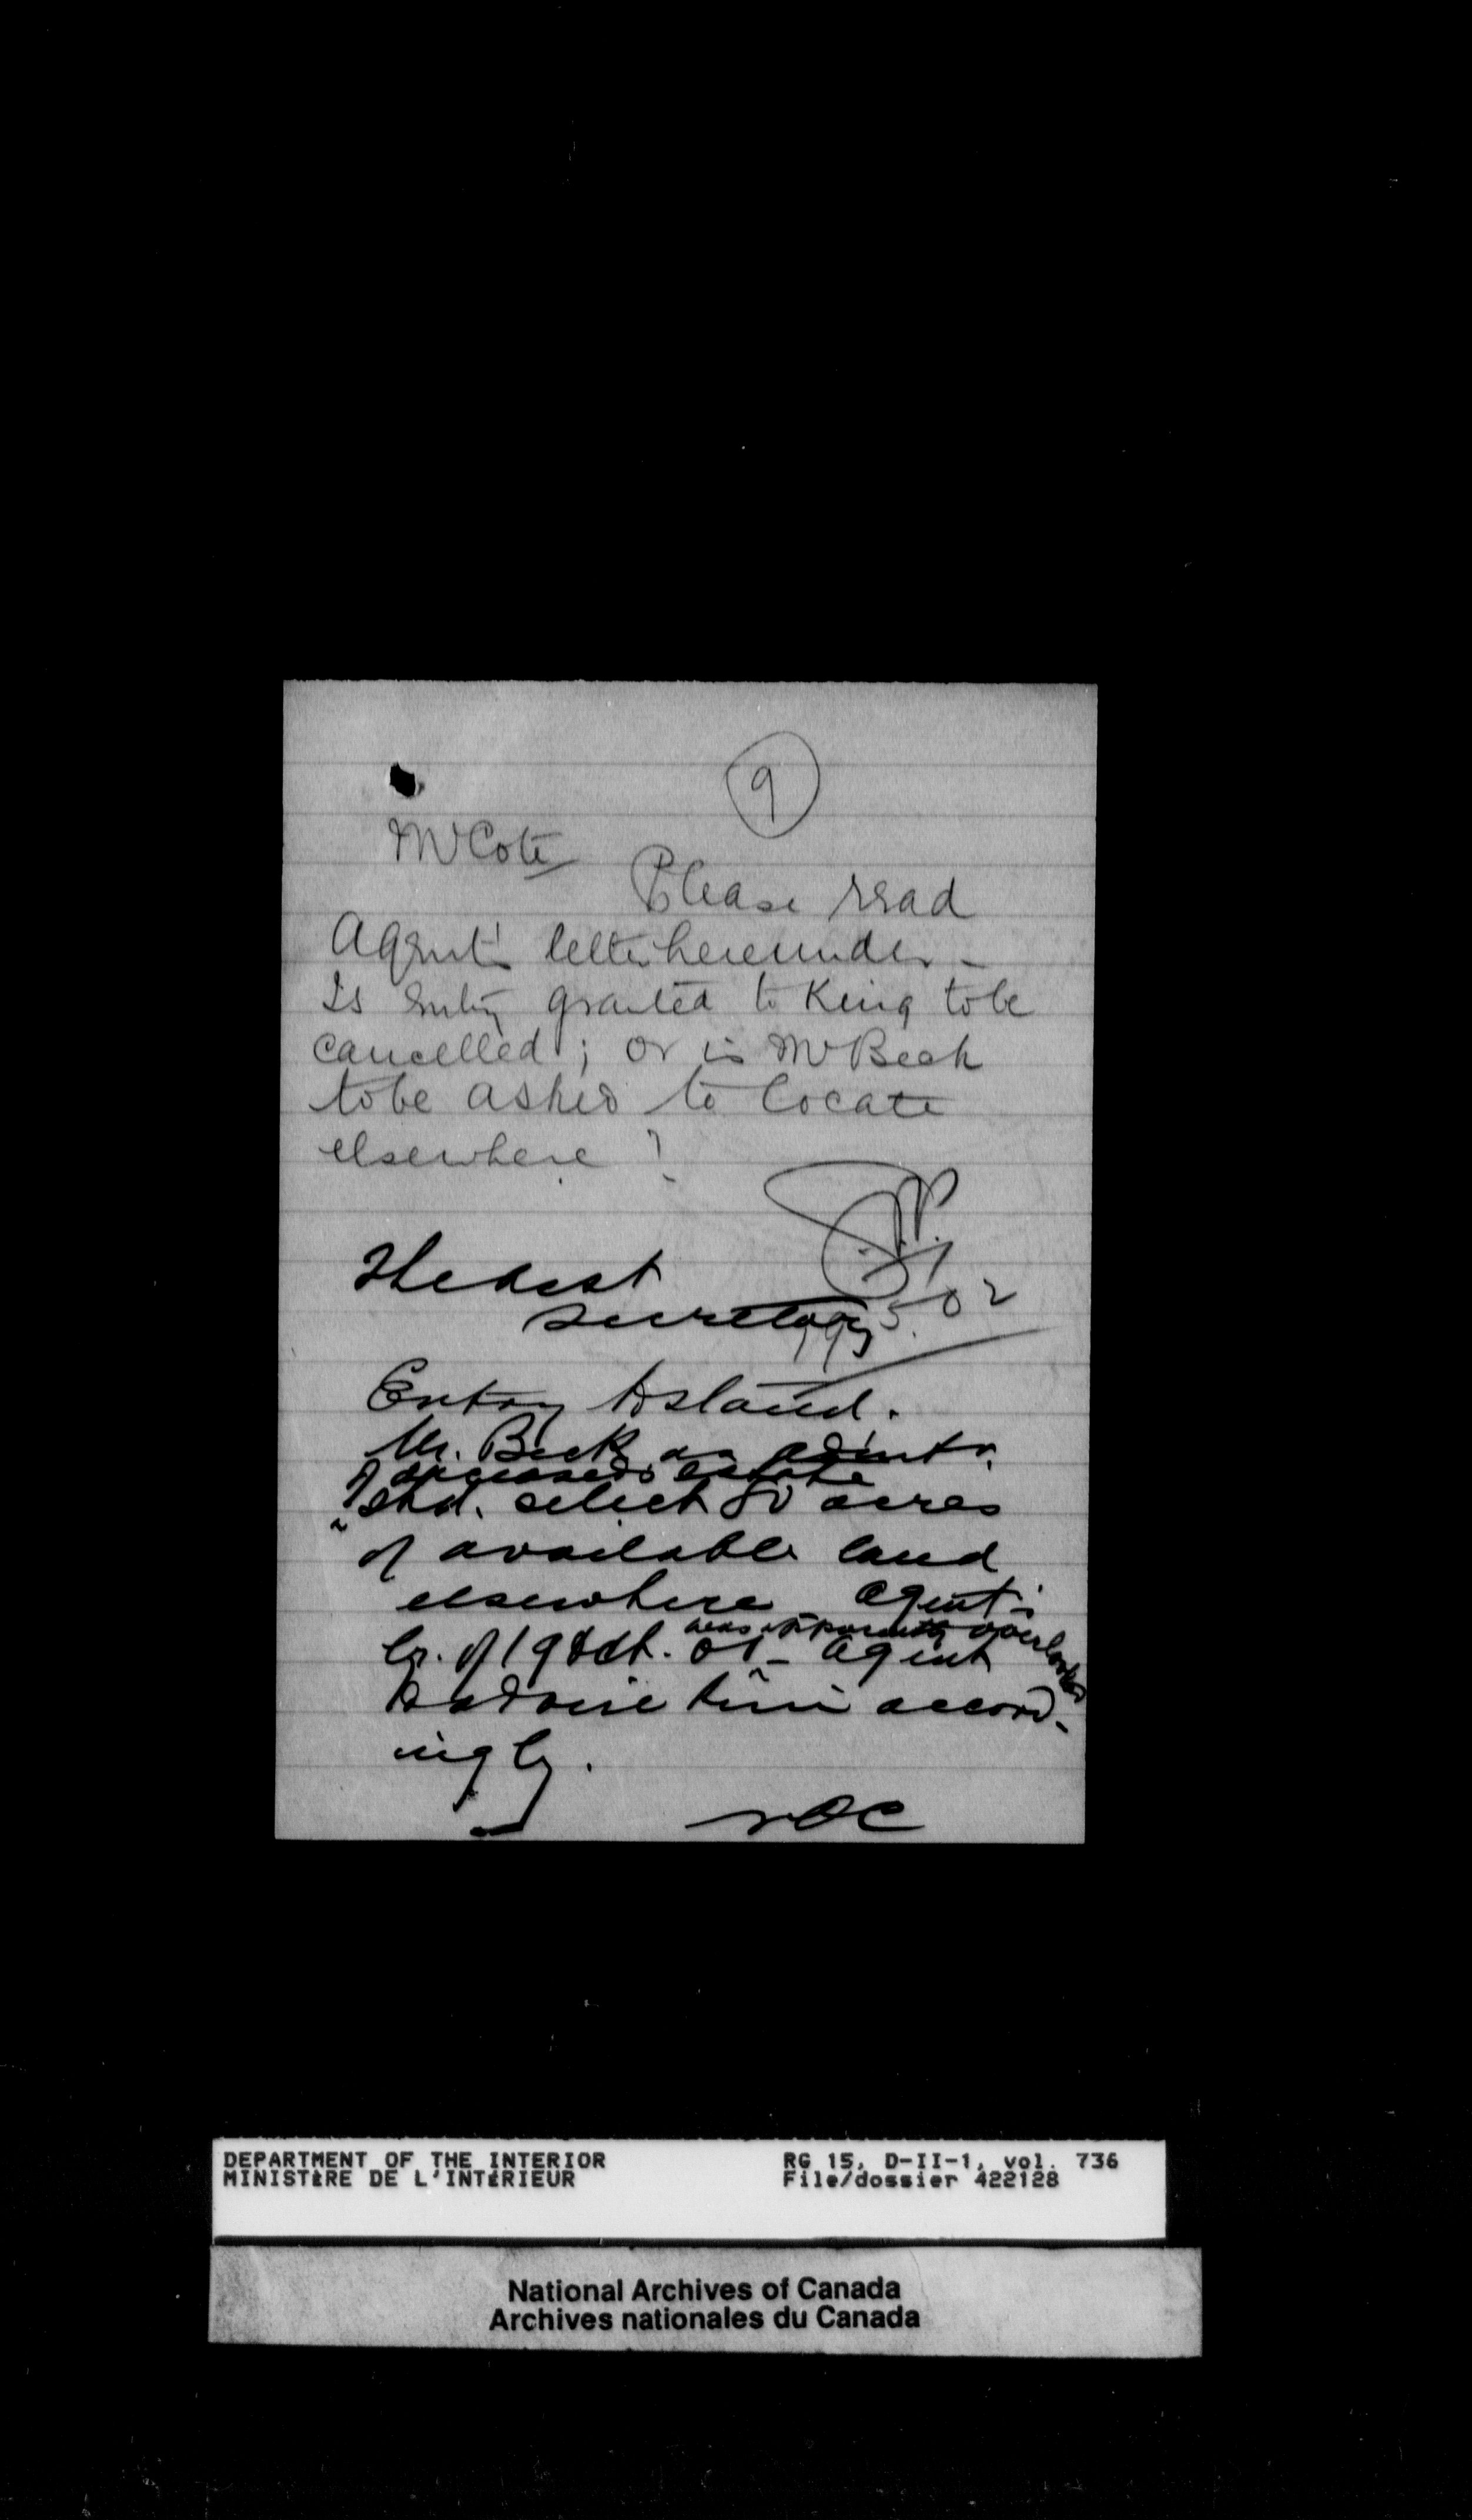 9
Mr Cote
Please read
Agent's letter hereunder -
Is entry granted to King to be
cancelled; or is Mr Beck
to be asked to locate
elsewhere?
19.5.02
The Asst
Secretary
Entry to stand.
Mr. Beck as admtr.
of deceased's estate
shd. select 80 acres
of available land
elsewhere Agent's
was apparently overlooked
lr. of 19 Oct. 01 - Agent
to advise him accord-
ingly.
NOC
DEPARTMENT OF THE INTERIOR
MINISTÈRE DE L'INTÉRIEUR
RG 15, D-II-1, vol. 736
File/dossier 422128
National Archives of Canada
Archives nationales du Canada